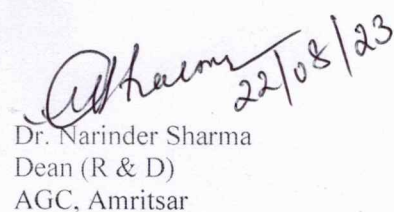 22/08/23
Dr. Narinder Sharma
Dean (R & D)
AGC, Amritsar